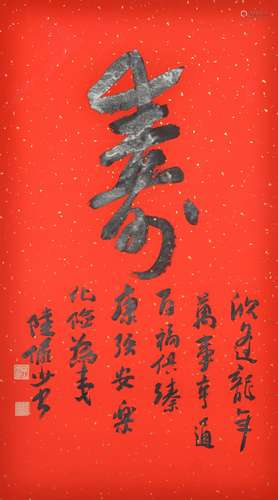 壽
欣逢龍年
萬事亨通
百福俱臻
康強安樂
化險為夷
陸儼少書